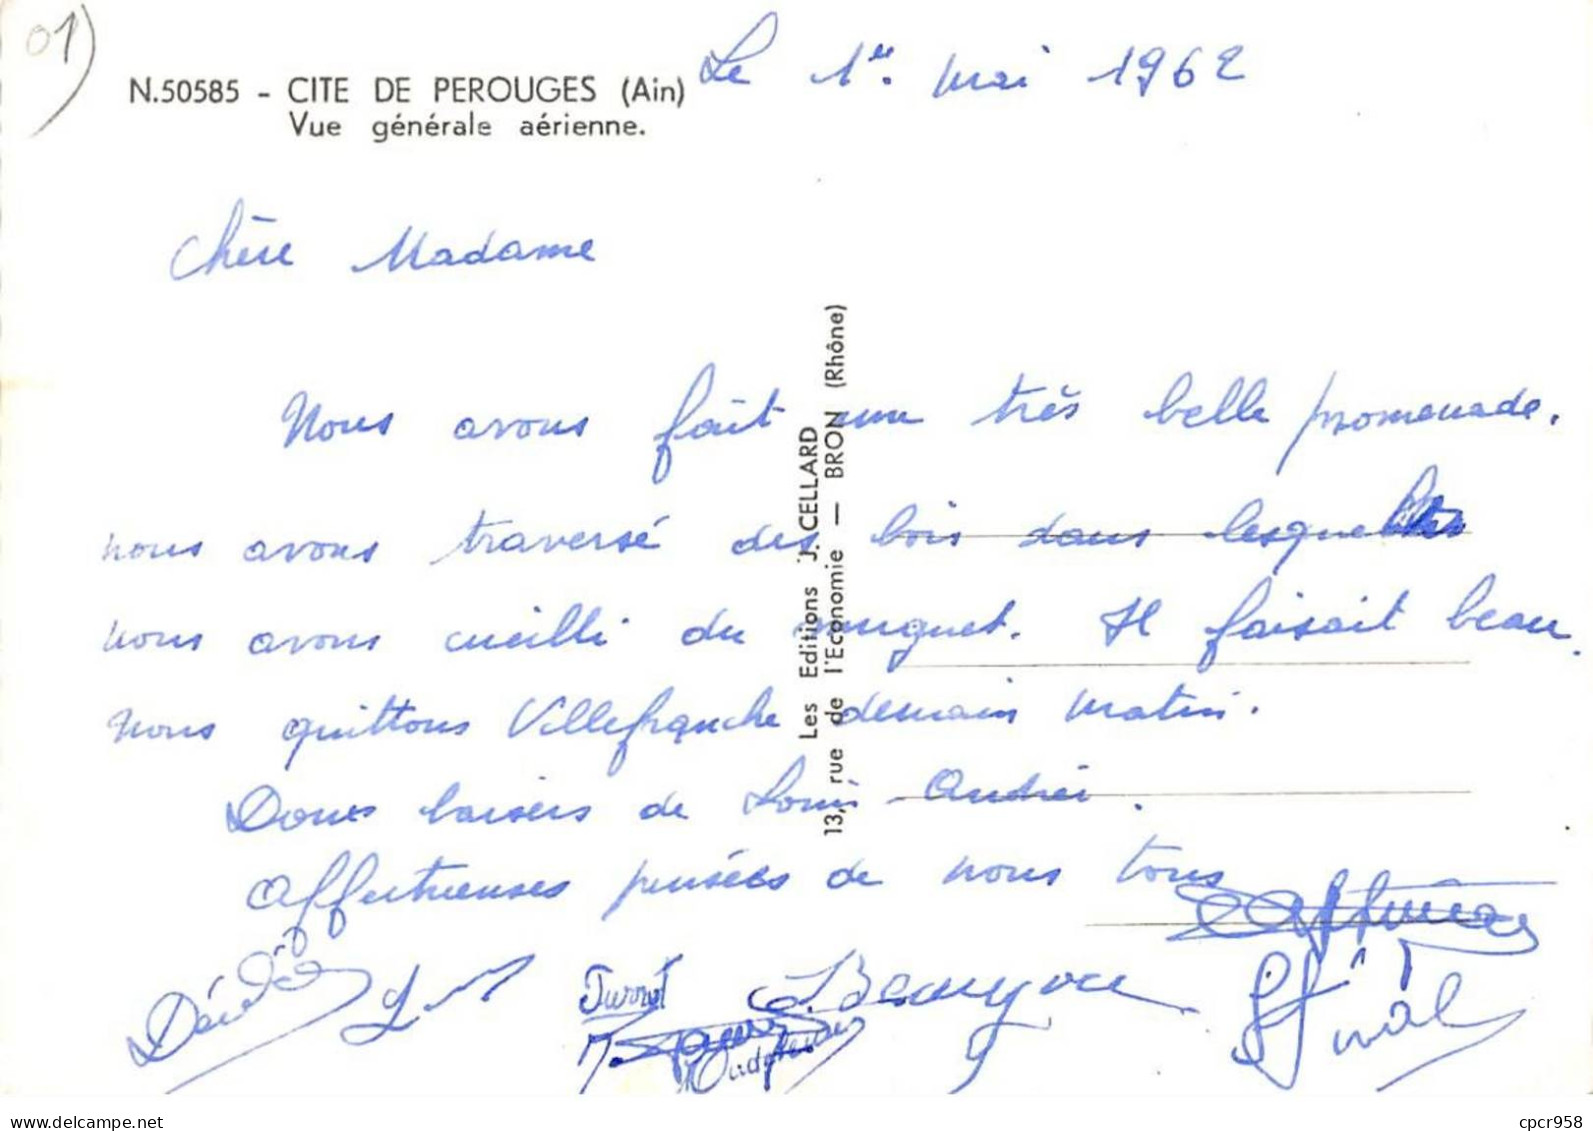 01)
N.50585 - CITE DE PEROUGES (Ain)
Vue générale aérienne.
Le 1er. mai 1962
Chère Madame
Nous avons fait une très belle promenade.
nous avons traversé des bois dans lesquels
nous avons cueilli du muguet. Il faisait beau.
Nous quittons Villefranche demain matin.
Doux baisers de Louis-André.
Affectueuses pensées de nous tous
Les Editions J. CELLARD
13, rue de l'Economie — BRON (Rhône)
cpcr958